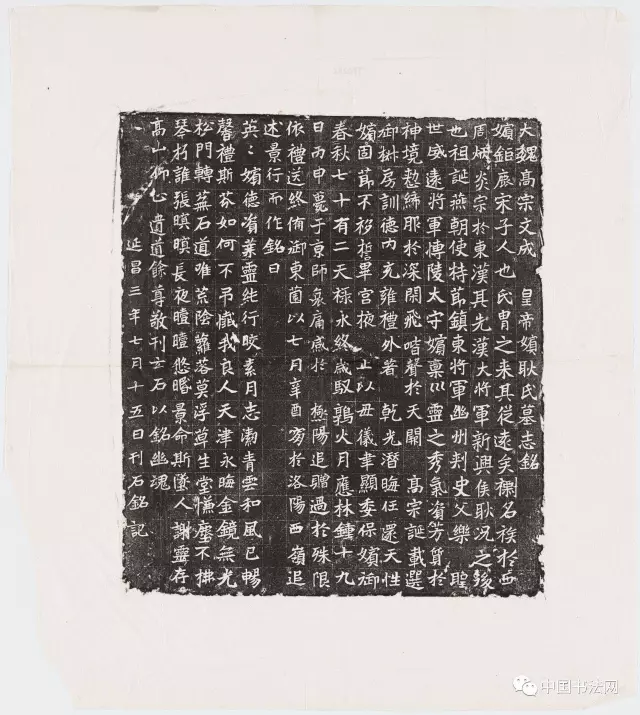 大魏髙宗文成 皇帝嬪耿氏墓志銘
嬪鉅鹿宋子人也氏胄之来其從逺矣標名族於西
周炳炎宗於東漢其先漢大將軍新興侯耿況之後
也祖誕燕朝使持節鎮東將軍幽州刾史父樂聖
世威遠將軍博陵太守嬪稟川靈之秀氣資芳質於
神境懃締服於深閨飛皆聲於天闕髙宗誕載選
御掖房訓德内充雍禮外著 乾光潛晦任還天性
嬪固節不移誓畢宫掖 上以毋儀聿顯委保嬪御
春秋七十有二天禄永終歲馭鶉火月應林鍾十九
日丙申薨于京師哀痛感於 極陽追贈過於殊限
依禮送終俻御東園以七月辛酉窆於洛陽西嶺追
述景行而作銘曰
英〻嬪德資葉靈純行皎素月志渤青雲和風已暢
馨禮斯芬如何不吊懺我良人天津永晦金鏡無光
松門轉蕪石道唯荒陰蘿落莫浮草生堂慊塵不拂
琴朽誰張暝暝長夜曀曀悠曖景命斯墜人謝靈存
髙山仰心遺道餘尊敬刊玄石以銘幽魂
延昌三年七月十五日刊石銘記
中国书法网